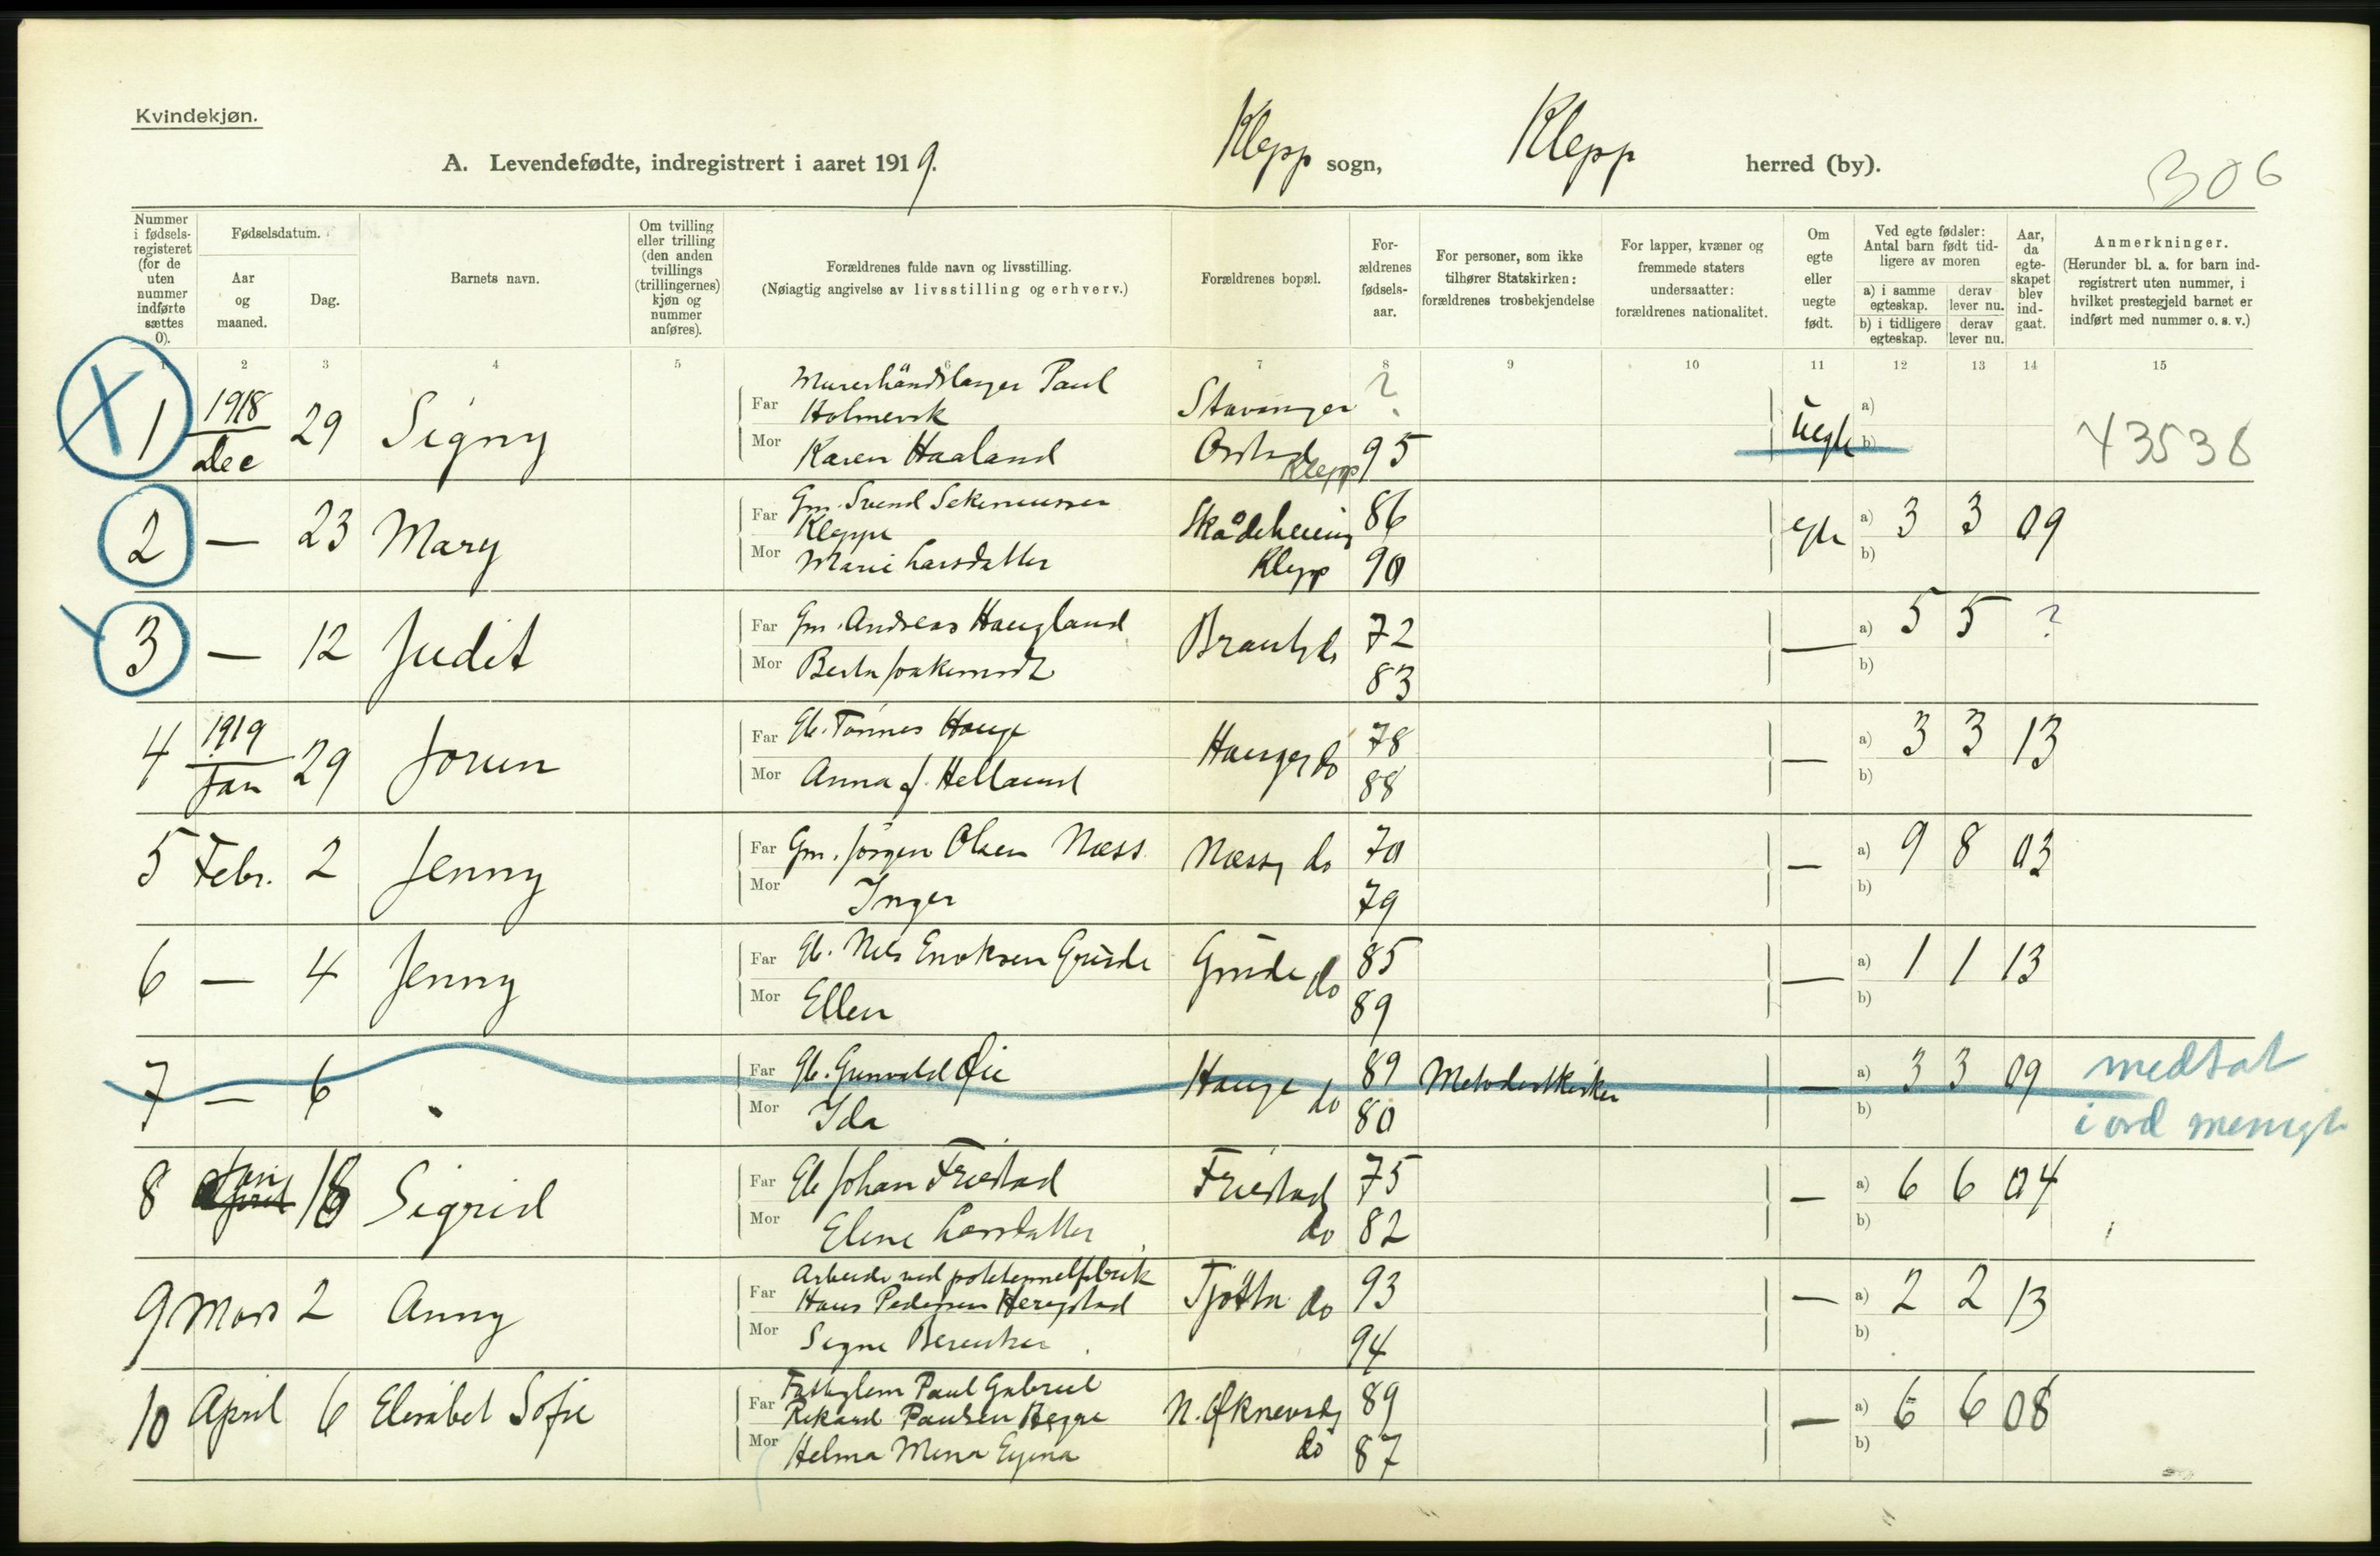 Kvindekjøn.
A. Levendefødte, indregistrert i aaret 1919. Klepp sogn, Klepp herred (by).
306
Nummer i fødsels-registeret (for de uten nummer indførte sættes 0).
Fødselsdatum.
Aar og maaned.
Dag.
Barnets navn.
Om tvilling eller trilling (den anden tvillings (trillingernes) kjøn og nummer anføres).
Forældrenes fulde navn og livsstilling.
(Nøiagtig angivelse av livsstilling og erhverv.)
Forældrenes bopæl.
For-ældrenes fødsels-aar.
For personer, som ikke tilhører Statskirken: forældrenes trosbekjendelse
For lapper, kvæner og fremmede staters undersaatter: forældrenes nationalitet.
Om egte eller uegte født.
Ved egte fødsler: Antal barn født tid-ligere av moren
a) i samme egteskap. derav lever nu.
b) i tidligere egteskap. derav lever nu.
Aar, da egte-skapet blev ind-gaat.
Anmerkninger.
(Herunder bl. a. for barn ind-registrert uten nummer, i hvilket prestegjeld barnet er indført med nummer o. s. v.)
1 2 3 4 5 6 7 8 9 10 11 12 13 14 15
X 1 1918 Dec 29 Signy
Far Murerhåndlanger Paul
Holmevik Stavanger ?
Mor Karen Haaland Klepp 95
uegte a) b) 43538
2 — 23 Mary
Far Gm. Svend
Kleppe 86
Mor Marie Larsdatter Klepp 90
egte a) 3 3 09 b)
3 — 12 Judit
Far Gm. Andreas Haugland do 72
Mor Berta 83
— a) 5 5 ? b)
4 1919 Jan 29 Jorun
Far Gb. Tønnes Hauge Hauge do 78
Mor Anna J. Helland 88
— a) 3 3 13 b)
5 Febr. 2 Jenny
Far Gm. Jørgen Olsen Næss Næss do 70
Mor Inger 79
— a) 9 8 03 b)
6 — 4 Jenny
Far Gb. Nils Enoksen Grude Grude do 85
Mor Ellen 89
— a) 1 1 13 b)
7 — 6
Far Gb. Gunvald Øie Hauge do 89 Metodistkirken
Mor Ida 80
— a) 3 3 09 b) medtat
i ord menigh
8 April Jan 18 Sigrid
Far Gb Johan Friestad Friestad 75
Mor Elene Larsdatter do 82
— a) 6 6 04 b)
9 Mars 2 Anny
Far Arbeider ved pottemelfabrik
Hans Pedersen Heregstad Tjøtta do 93
Mor Signe Berentsen 94
— a) 2 2 13 b)
10 April 6 Elisabet Sofie
Far Paul Gabriel
Rikard Paulsen Begre N. 89
Mor Helma Mina do 87
— a) 6 6 08 b)